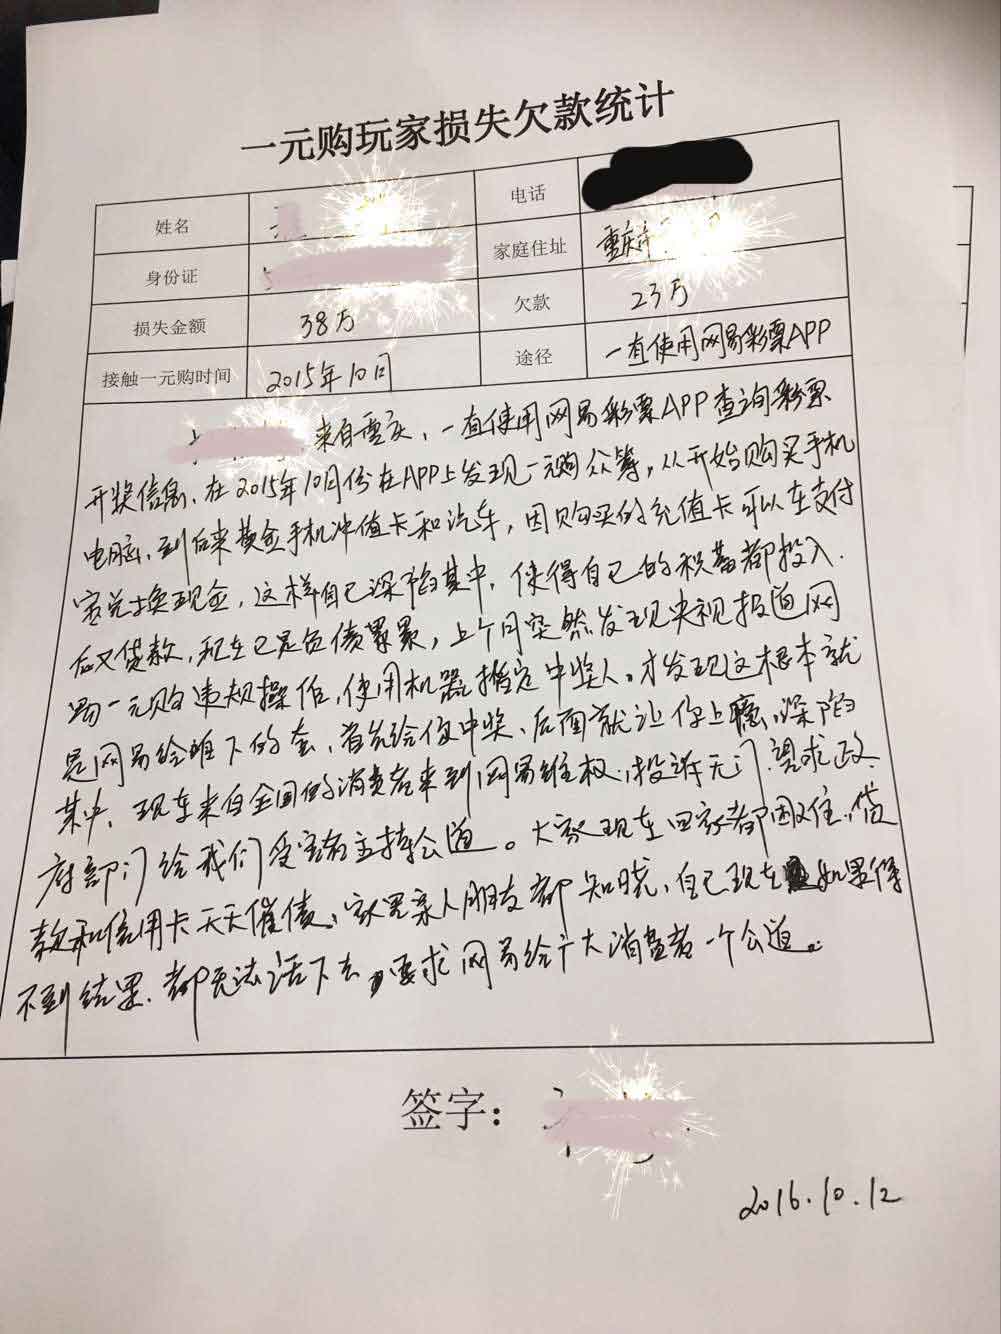 一元购玩家损失欠款统计
姓名
电话
身份证
家庭住址 重庆市
损失金额 38万 欠款 23万
接触一元购时间 2015年10月 途径 一直使用网易彩票APP
来自重庆，一直使用网易彩票APP查询彩票
开奖信息、在2015年10月份在APP上发现一元购众筹，从开始购买手机
电脑、到后来黄金手机冲值卡和汽车，因购买的充值卡可以在支付
宝兑换现金，这样自己深陷其中，使得自己的积蓄都投入.
后又贷款，现在已是负债累累，上个月突然发现央视报道网
易一元购违规操作，使用机器指定中奖人。才发现这根本就
是网易给谁下的套、首先给你中奖、后面就让你上瘾、深陷
其中、现在来自全国的消费者来到网易维权，投诉无门 请求政
府部门给我们受害者主持公道。大家现在回家都困难，贷
款和信用卡天天催债、家里亲人朋友都知晓，自己现在 如果得
不到结果、都无法活下去，要求网易给广大消费者一个公道。
签字：
2016.10.12